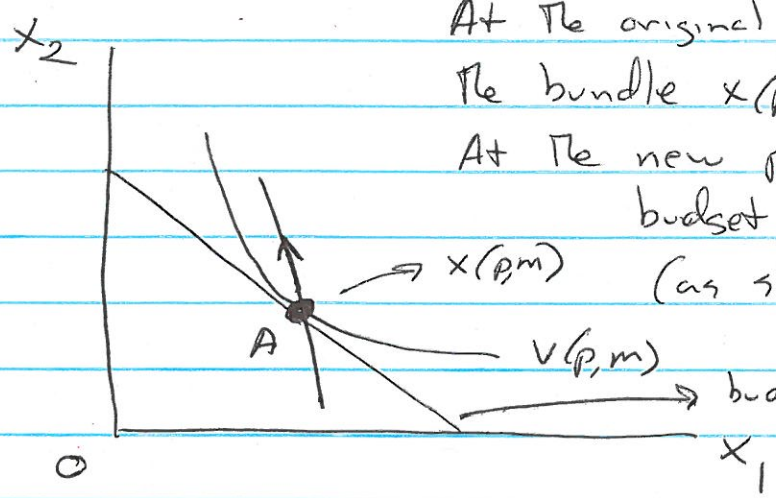 x₂
At The original
The bundle x(p
At The new p
budget
x(p,m)
(as s
A
V(p,m)
bud
O
x₁